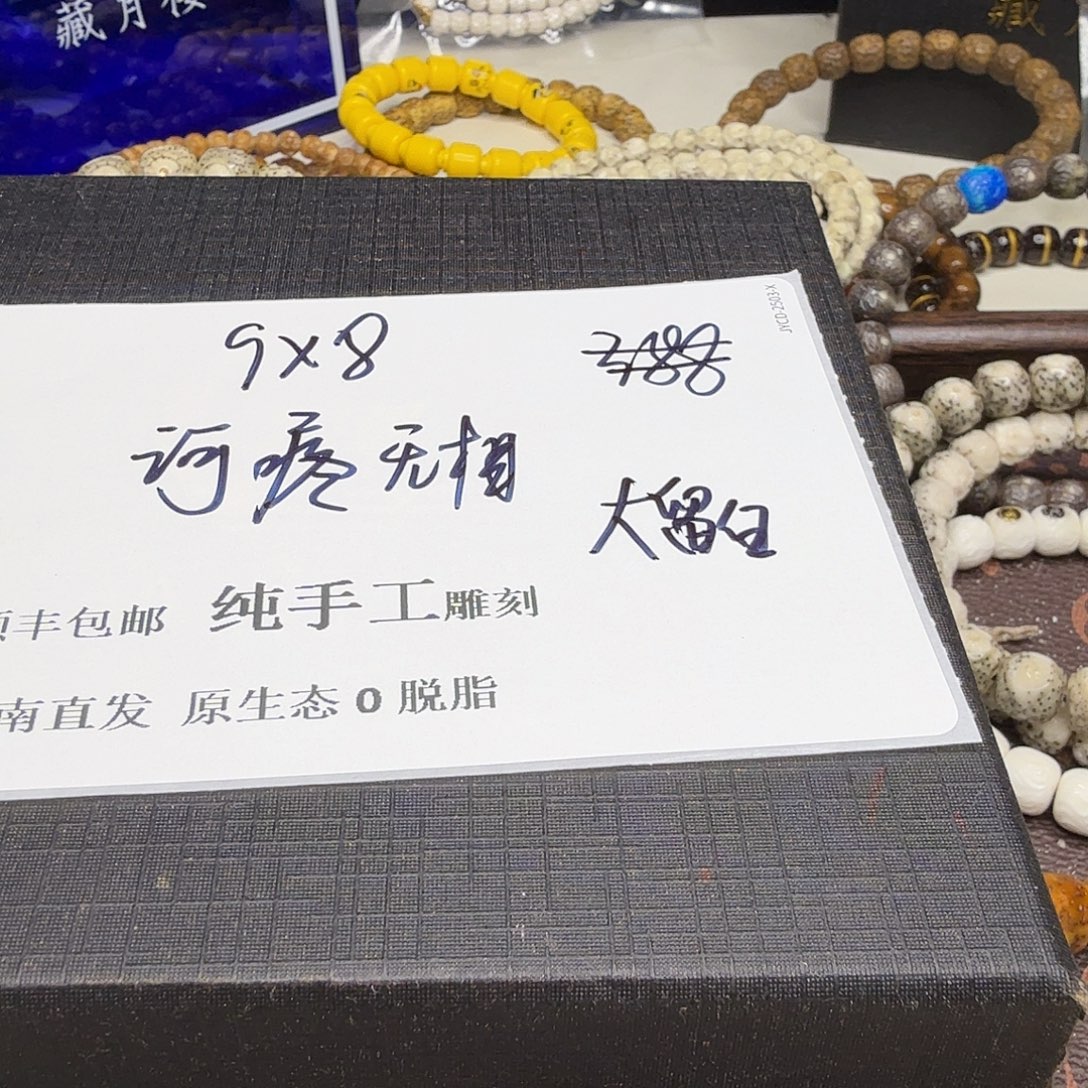 藏月楼
藏
JYCD-2503-X
9×8
诃疼无相
大留白
顺丰包邮 纯手工雕刻
南直发 原生态0脱脂